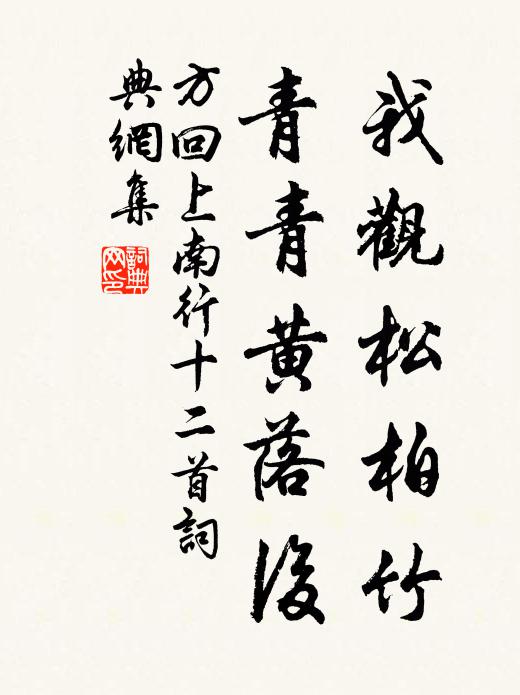 我觀松柏竹
青青黃落後
方回上南行十二首詞
典網集
詞典
网印